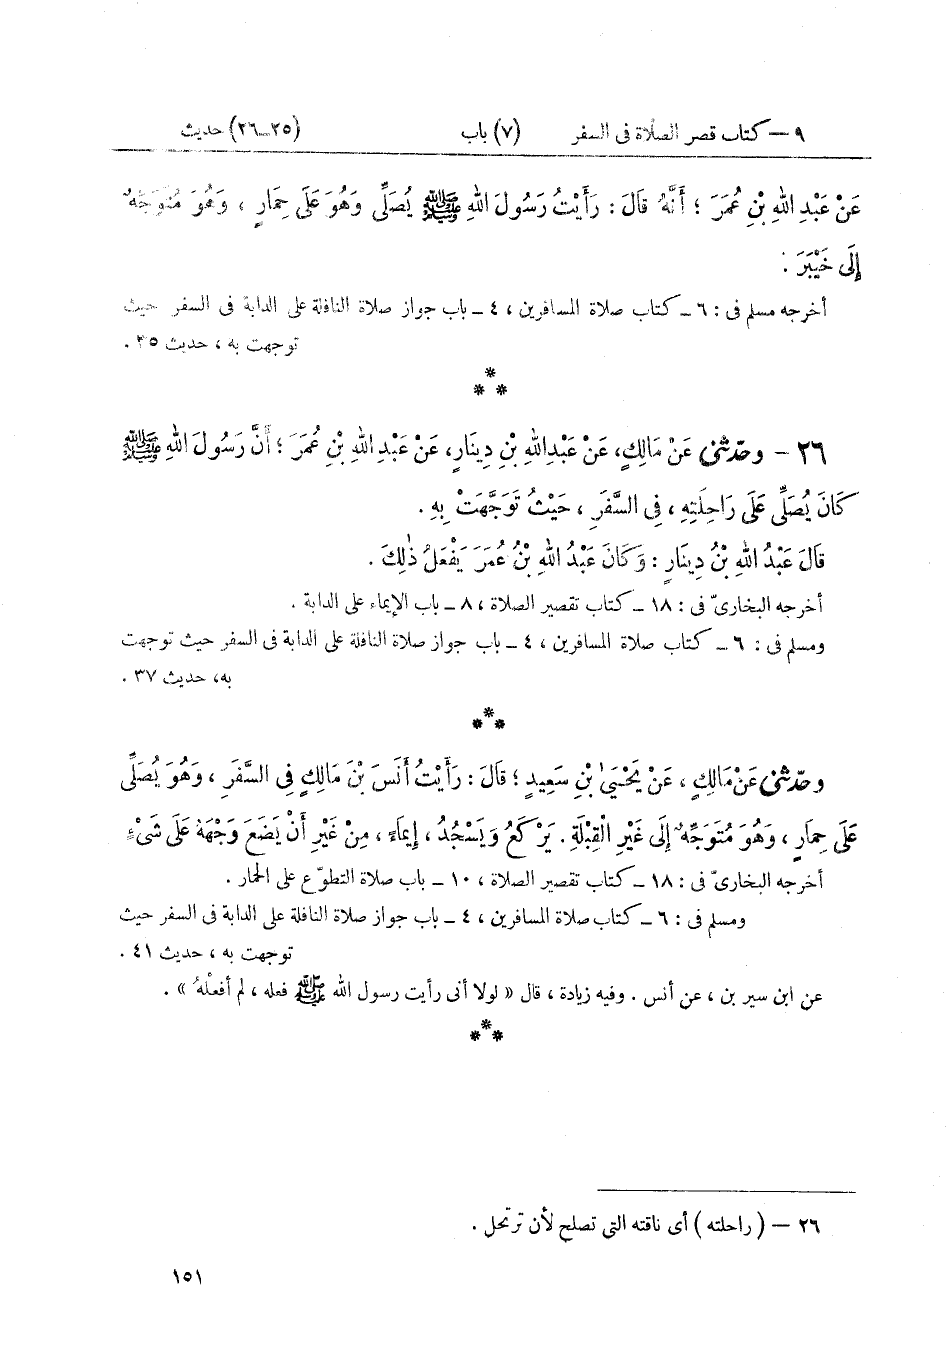 ٩ — كتاب قصر الصلاة فى السفر (٧) باب (٢٥–٢٦) حديث
عَنْ عَبْدِ اللهِ بْنِ عُمَرَ ؛ أَنَّهُ قَالَ : رَأَيْتُ رَسُولَ اللهِ ﷺ يُصَلِّى وَهُوَ عَلَى حِمَارٍ ، وَهُوَ مُتَوَجِّهٌ
إِلَى خَيْبَرَ .
أخرجه مسلم فى : ٦ – كتاب صلاة المسافرين ، ٤ – باب جواز صلاة النافلة على الدابة فى السفر حيث
توجهت به ، حديث ٣٥ .
*
* *
٢٦ – وحدّثنى عَنْ مَالِكٍ، عَنْ عَبْدِ اللهِ بْنِ دِينَارٍ، عَنْ عَبْدِ اللهِ بْنِ عُمَرَ ؛ أَنَّ رَسُولَ اللهِ ﷺ
كَانَ يُصَلِّى عَلَى رَاحِلَتِهِ ، فِى السَّفَرِ ، حَيْثُ تَوَجَّهَتْ بِهِ .
قَالَ عَبْدُ اللهِ بْنُ دِينَارٍ : وَكَانَ عَبْدُ اللهِ بْنُ عُمَرَ يَفْعَلُ ذٰلِكَ .
أخرجه البخارىّ فى : ١٨ – كتاب تقصير الصلاة ، ٨ – باب الإيماء على الدابة .
ومسلم فى : ٦ – كتاب صلاة المسافرين ، ٤ – باب جواز صلاة النافلة على الدابة فى السفر حيث توجهت
به، حديث ٣٧ .
*
* *
وحدّثنى عَنْ مَالِكٍ ، عَنْ يَحْيَىٰ بْنِ سَعِيدٍ ؛ قَالَ : رَأَيْتُ أَنَسَ بْنَ مَالِكٍ فِى السَّفَرِ ، وَهُوَ يُصَلِّى
عَلَى حِمَارٍ ، وَهُوَ مُتَوَجِّهٌ إِلَى غَيْرِ الْقِبْلَةِ . يَرْكَعُ وَيَسْجُدُ ، إِيمَاءً ، مِنْ غَيْرِ أَنْ يَضَعَ وَجْهَهُ عَلَى شَىْءٍ
أخرجه البخارىّ فى : ١٨ – كتاب تقصير الصلاة ، ١٠ – باب صلاة التطوّع على الحمار .
ومسلم فى : ٦ – كتاب صلاة المسافرين ، ٤ – باب جواز صلاة النافلة على الدابة فى السفر حيث
توجهت به ، حديث ٤١ .
عن ابن سيرين ، عن أنس . وفيه زيادة ، قال « لولا أنى رأيت رسول الله ﷺ فعله ، لم أفعلْهُ » .
*
* *
٢٦ – ( راحلته ) أى ناقته التى تصلح لأن ترتحل .
١٥١